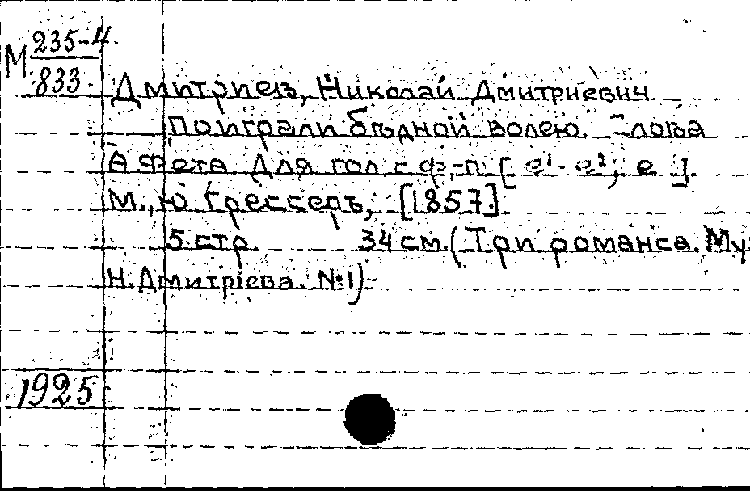 М 235-4
833
Дмитриев, Николай Дмитриевич
Поиграли бѣдной волею. Слова
А Фета Для гол с ф.-п. [e¹-e², e ].
М., Ю Грессеръ, [1857]
5 стр. 34 см. (Три романса. Муз
Н. Дмитріева. №1)
1925